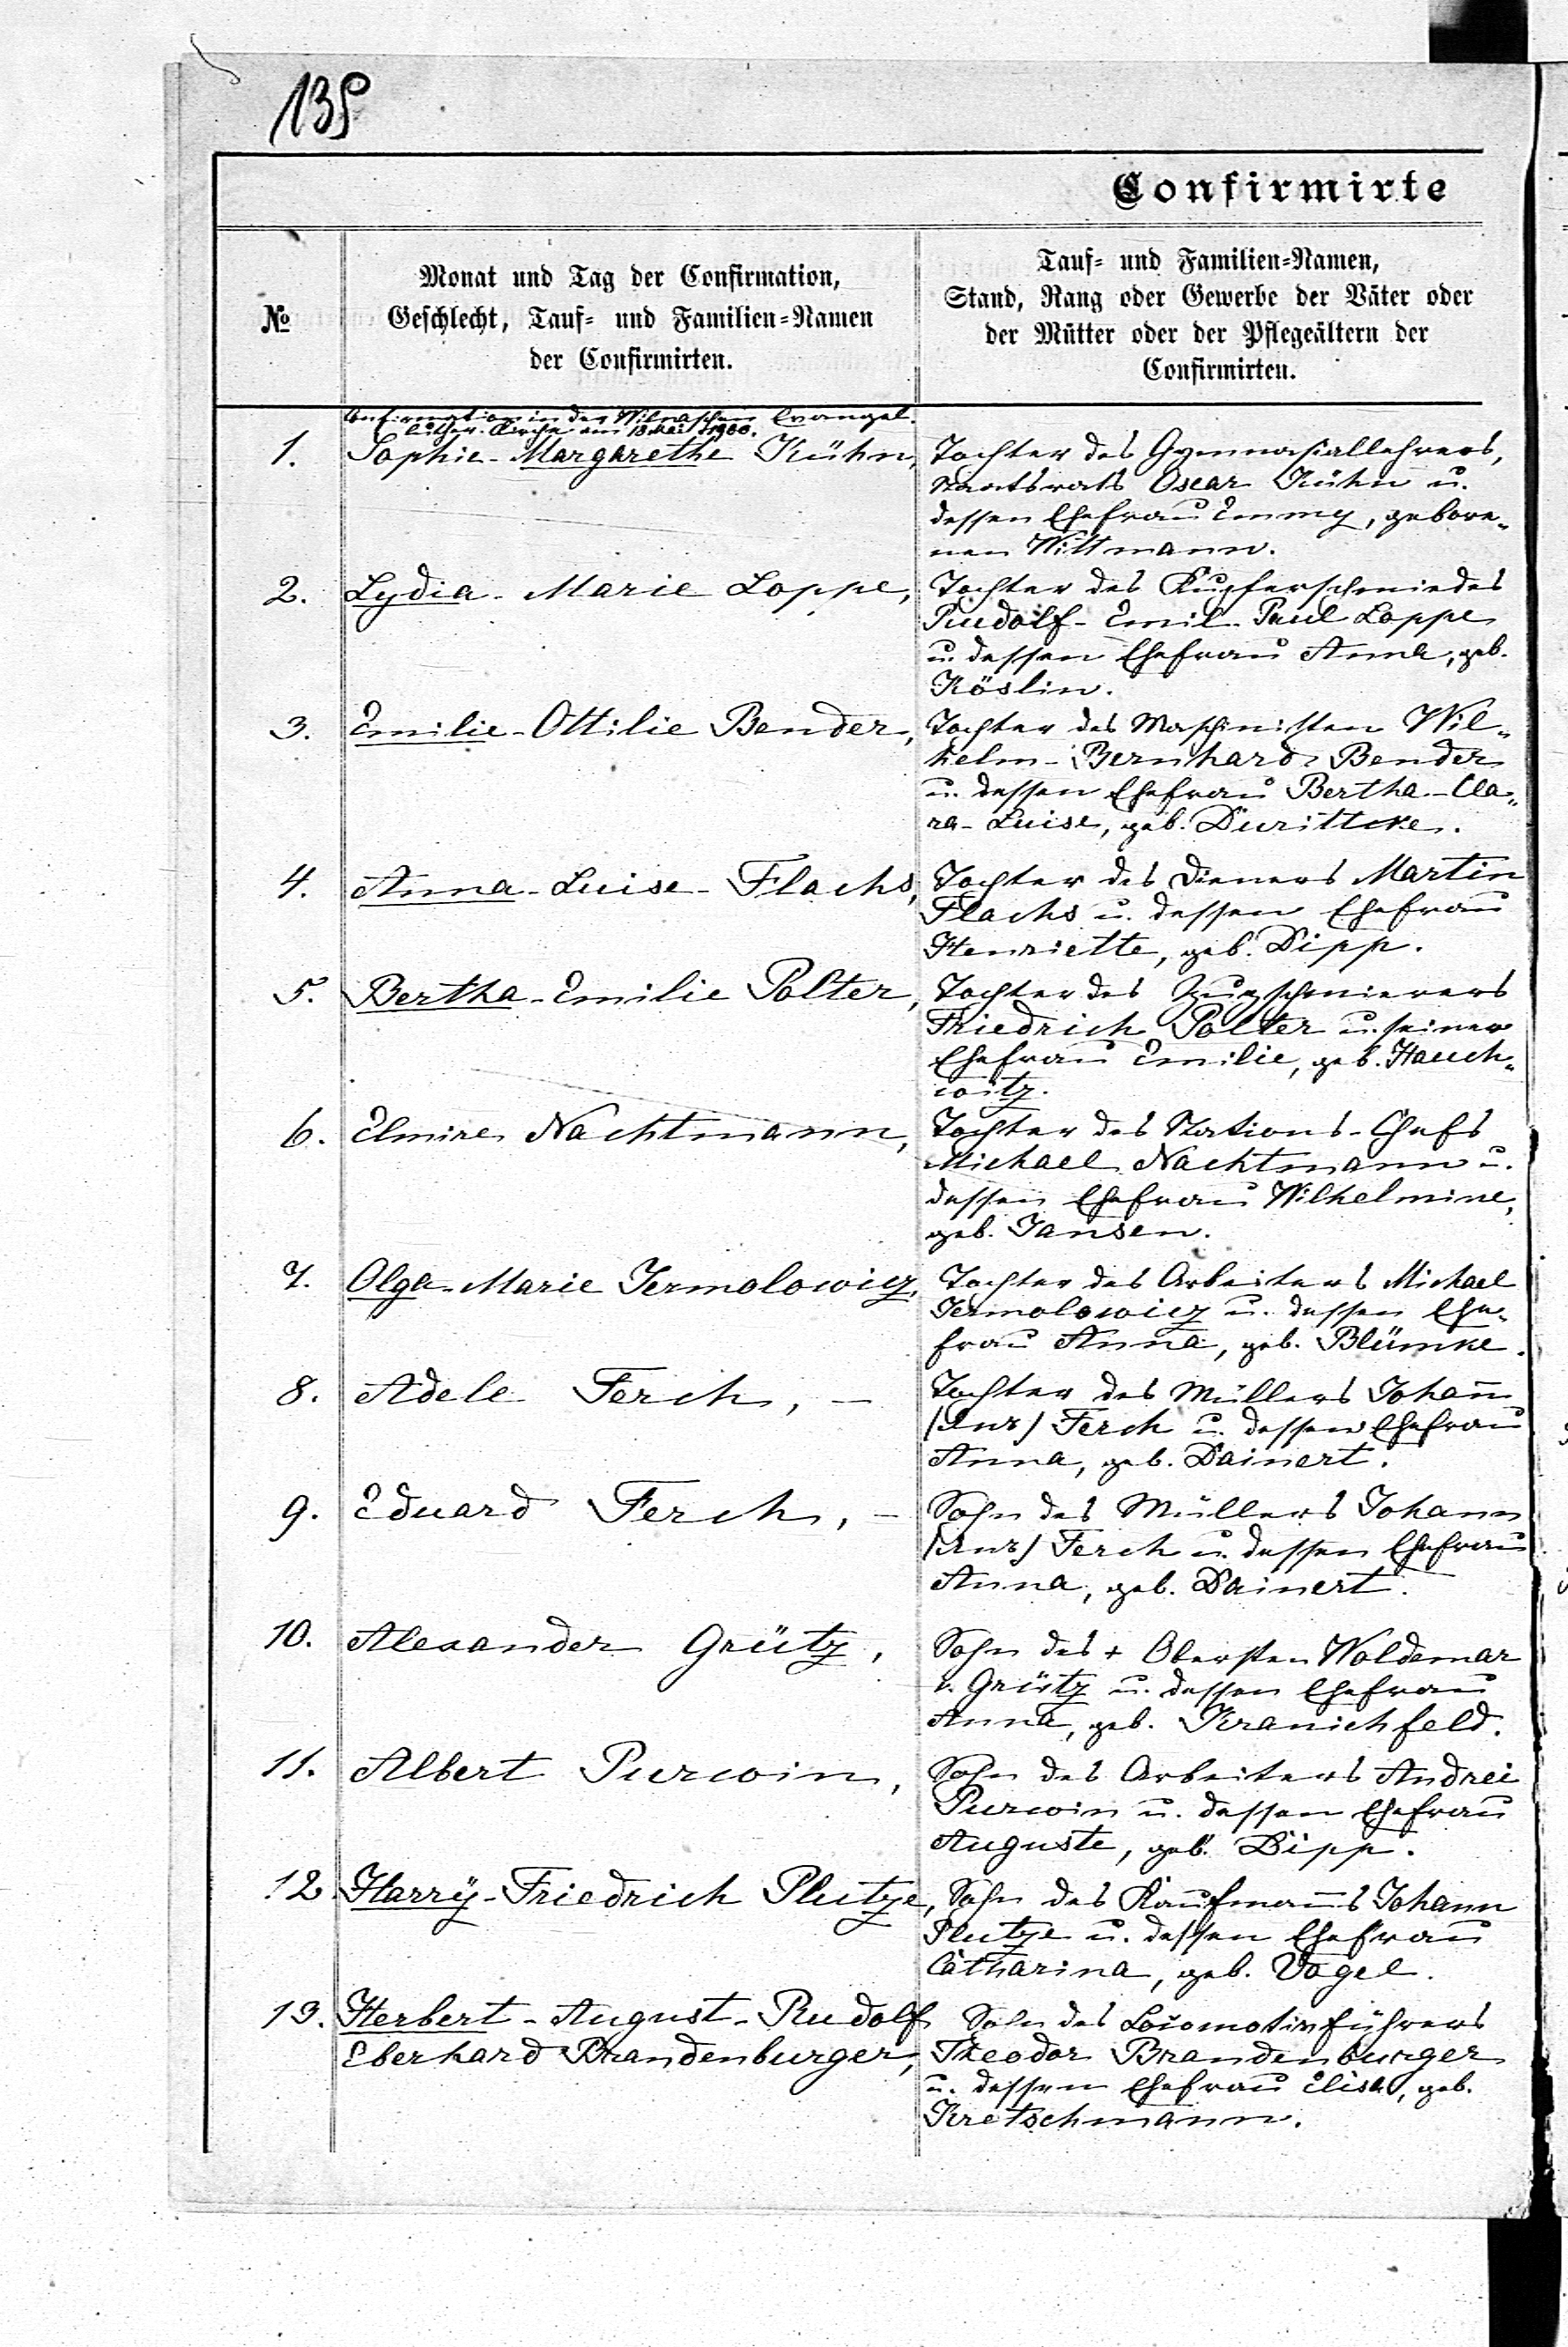 135
Confirmirte
№
Monat und Tag der Confirmation,
Geschlecht, Tauf- und Familien-Namen
der Confirmirten.
Tauf- und Familien-Namen,
Stand, Rang oder Gewerbe der Väter oder
der Mütter oder der Pflegeältern der
Confirmirten.
Confirmation in der Wilnaschen Evangel.
luther. Kirche am 18 Mai 1900.
1. Sophie-Margarethe Kühn,
Tochter des Gymnasiallehrers,
Staatsrats Oscar Kühn u.
dessen Ehefrau Emmy, gebore-
nen Wittmann.
2. Lydia-Marie Loppe,
Tochter des Kupferschmiedes
Rudolf-Emil-Paul Loppe
u. dessen Ehefrau Anna, geb.
Köslin.
3. Emilie-Ottilie Bender,
Tochter des Maschinisten Wil-
helm-Bernhard Bender
u. dessen Ehefrau Bertha-Cla-
ra-Luise, geb. Durittcke.
4. Anna-Luise-Flachs,
Tochter des Dieners Martin
Flachs u. dessen Ehefrau
Henriette, geb. Dipp.
5. Bertha-Emilie Polter,
Tochter des Zugschmierers
Friedrich Polter u. seiner
Ehefrau Emilie, geb. Hauch-
witz.
6. Elmire Nachtmann,
Tochter des Stations-Chefs
Michael Nachtmann u.
dessen Ehefrau Wilhelmine,
geb. Jansen.
7. Olga-Marie Jermolowicz,
Tochter des Arbeiters Michael
Jermolowicz u. dessen Ehe-
frau Anna, geb. Blümke.
8. Adele Ferch, –
Tochter des Müllers Johann
Ferch u. dessen Ehefrau
Anna, geb. Dainert.
9. Eduard Ferch, –
Sohn des Müllers Johann
Ferch u. dessen Ehefrau
Anna, geb. Dainert.
10. Alexander Grütz,
Sohn des + Obersten Woldemar
v. Grütz u. dessen Ehefrau
Anna, geb. Kranichfeld.
11. Albert Purwin,
Sohn des Arbeiters Andrei
Purwin u. dessen Ehefrau
Auguste, geb. Dipp.
12. Harry-Friedrich Plutze,
Sohn des Kaufmanns Johann
Plutze u. dessen Ehefrau
Catharina, geb. Vogel.
13. Herbert-August-Rudolf
Eberhard Brandenburger,
Sohn des Locomotivführers
Theodor Brandenburger
u. dessen Ehefrau Elise, geb.
Kretschmann.